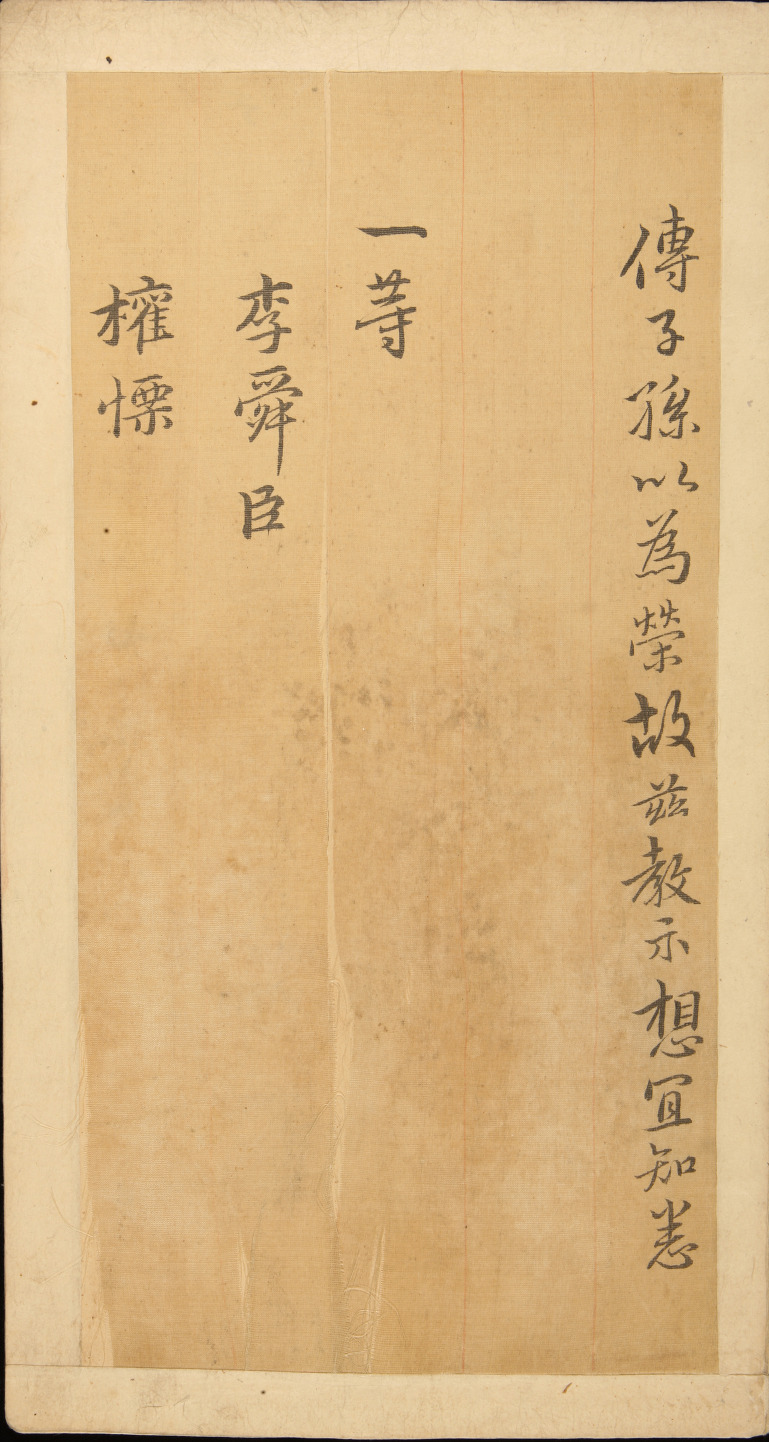 傳子孫以為榮故玆教示想宜知悉
一等
李舜臣
權慄